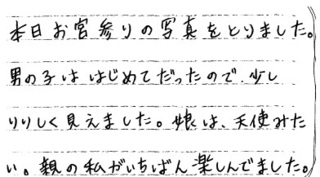 本日お宮参りの写真をとりました。
男の子ははじめてだったので、少し
りりしく見えました。娘は、天使みた
い。親の私がいちばん楽しんでました。